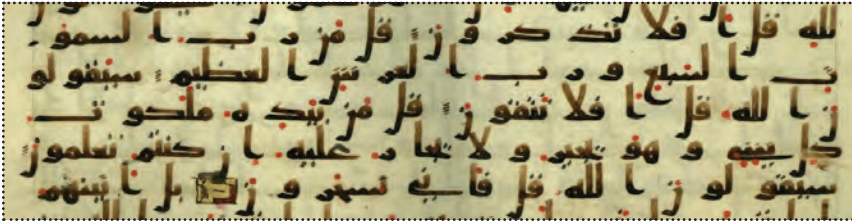 لله قل افلا تذكرون قل من رب السمو
ت السبع ورب العرش العظيم سيقولو
ن الله قل افلا تتقون قل من بيده ملكوت
كل شى وهو يجير ولا يجار عليه ان كنتم تعلمون
سيقولون الله قل فانى تسحرون بل اتينهم